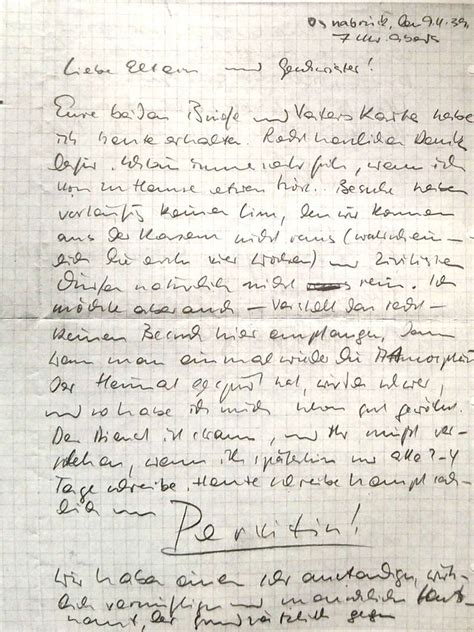 Osnabrück, den 9.11.39,
7 Uhr abends
Liebe Eltern und Geschwister!
Eure beiden Briefe und Vaters Karte habe
ich heute erhalten. Recht herzlichen Dank
dafür. Ich bin immer sehr froh, wenn ich
von zu Hause etwas hör. Besuche haben
vorläufig keinen Sinn, denn wir kommen
aus der Kaserne nicht raus (wahrschein-
lich die ersten vier Wochen) und Zivilisten
dürfen natürlich nicht rein. Ich
möchte aber auch – versteht das recht –
keinen Besuch hier empfangen, denn
wenn man einmal wieder die Atmosphäre
der Heimat gespürt hat, wird es schwer,
und so habe ich mich schon gut gewöhnt.
Der Dienst ist stramm, und Ihr müßt ver-
stehen, wenn ich späterhin nur alle 2-4
Tage schreibe. Heute schreibe hauptsäch-
lich um
Pervitin!
Wir haben einen sehr anständigen, wirk-
lich vernünftigen und menschlichen
der grundsätzlich gegen